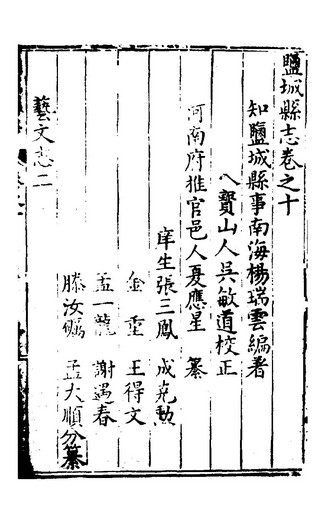 鹽城縣志卷之十
知鹽城縣事南海楊瑞雲編著
八寶山人吳敏道校正
河南府推官邑人夏應星 纂
庠生張三鳳 成克勳
金重 王得文
孟一龍 謝遇春
滕汝礪 孟大順分纂
藝文志二